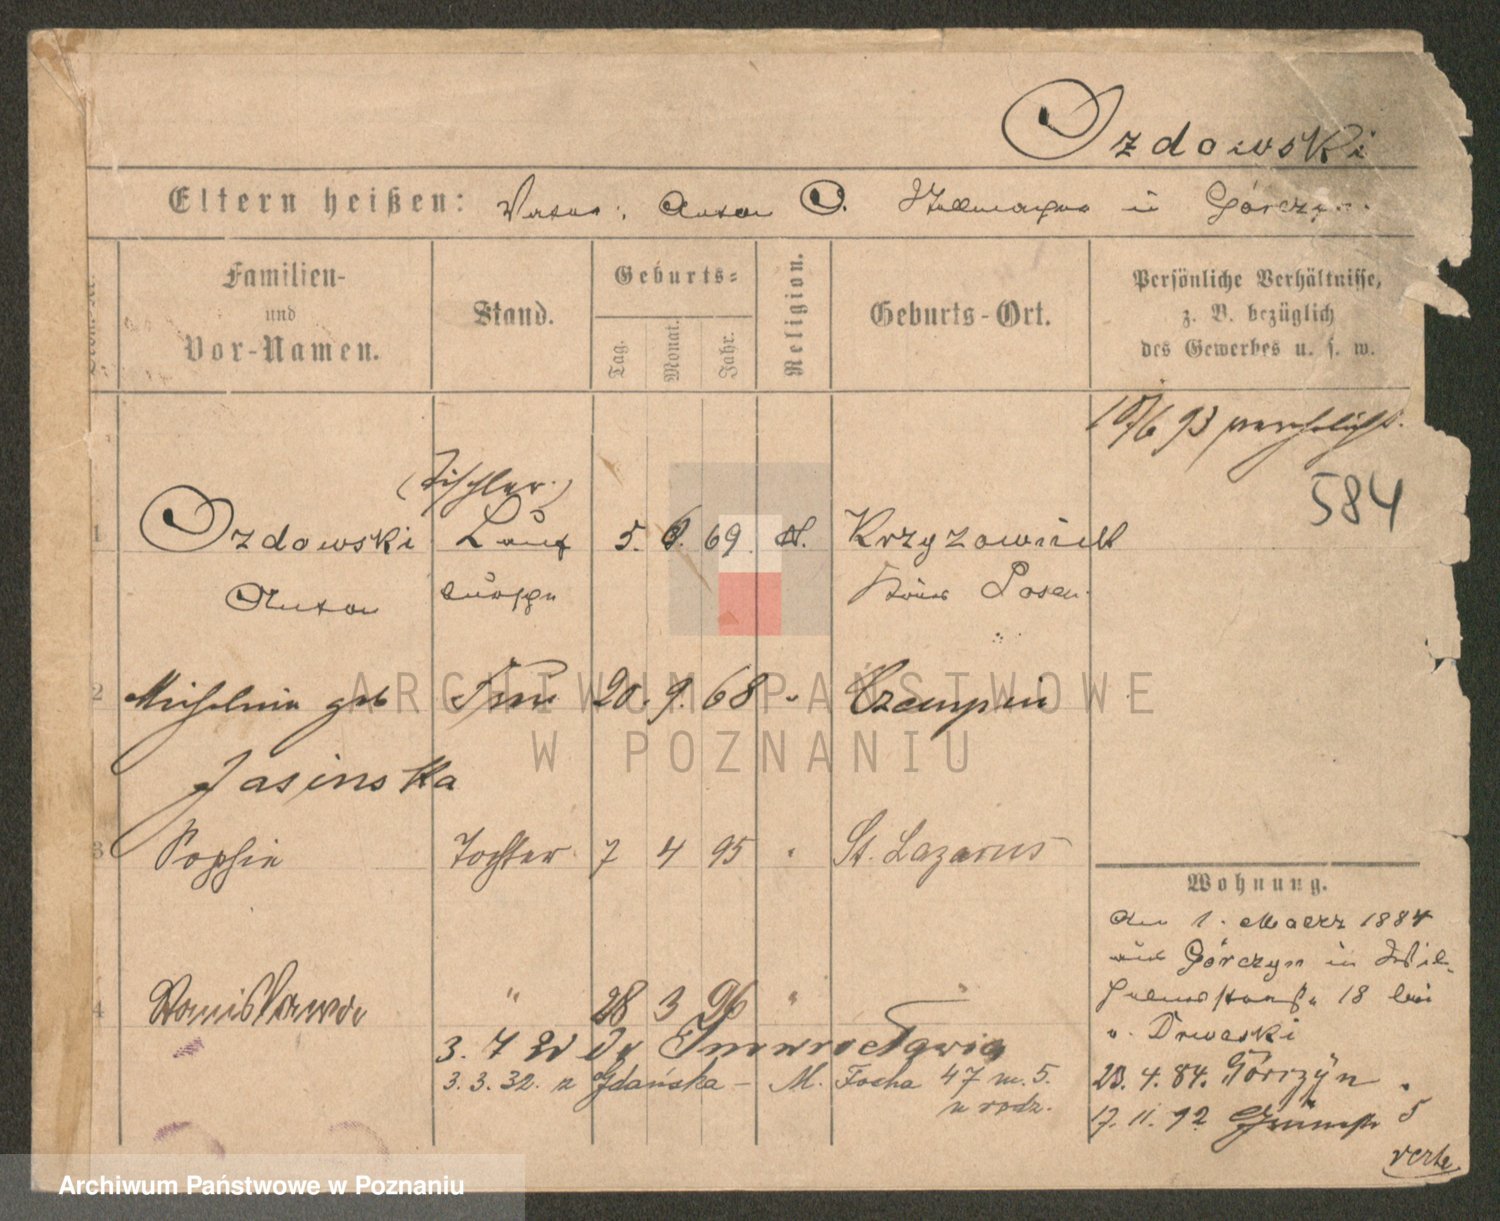 Ozdowski
Eltern heißen: Vater: Anton O. Stellmacher in Górczyn
Familien-
und
Vor-Namen.
Stand.
Geburts-
Tag.
Monat.
Jahr.
Religion.
Geburts-Ort.
Persönliche Verhältnisse,
z. B. bezüglich
des Gewerbes u. s. w.
10/6 93 verehelicht.
584
(Tischler)
1 Ozdowski Lauf 5. 6. 69. k. Krzyzownik
Anton bursche Kreis Posen
2 Michalina geb Frau 20. 9. 68 " Czempin
Jasinska
3 Sophie Tochter 7 4 95 " St. Lazarus
4 Stanislawa " 28 3 96 " "
3. 7 Inowrocławia
3. 3. 32. z Gdańska - M. Focha 47 m. 5.
u rodz.
Wohnung.
Am 1. Maerz 1884
aus Górczyn in Wil-
helmstraße 18 bei
v. Drweski
23. 4. 84. Górczyn
17. 11. 92 5
verte
ARCHIWUM PAŃSTWOWE
W POZNANIU
Archiwum Państwowe w Poznaniu